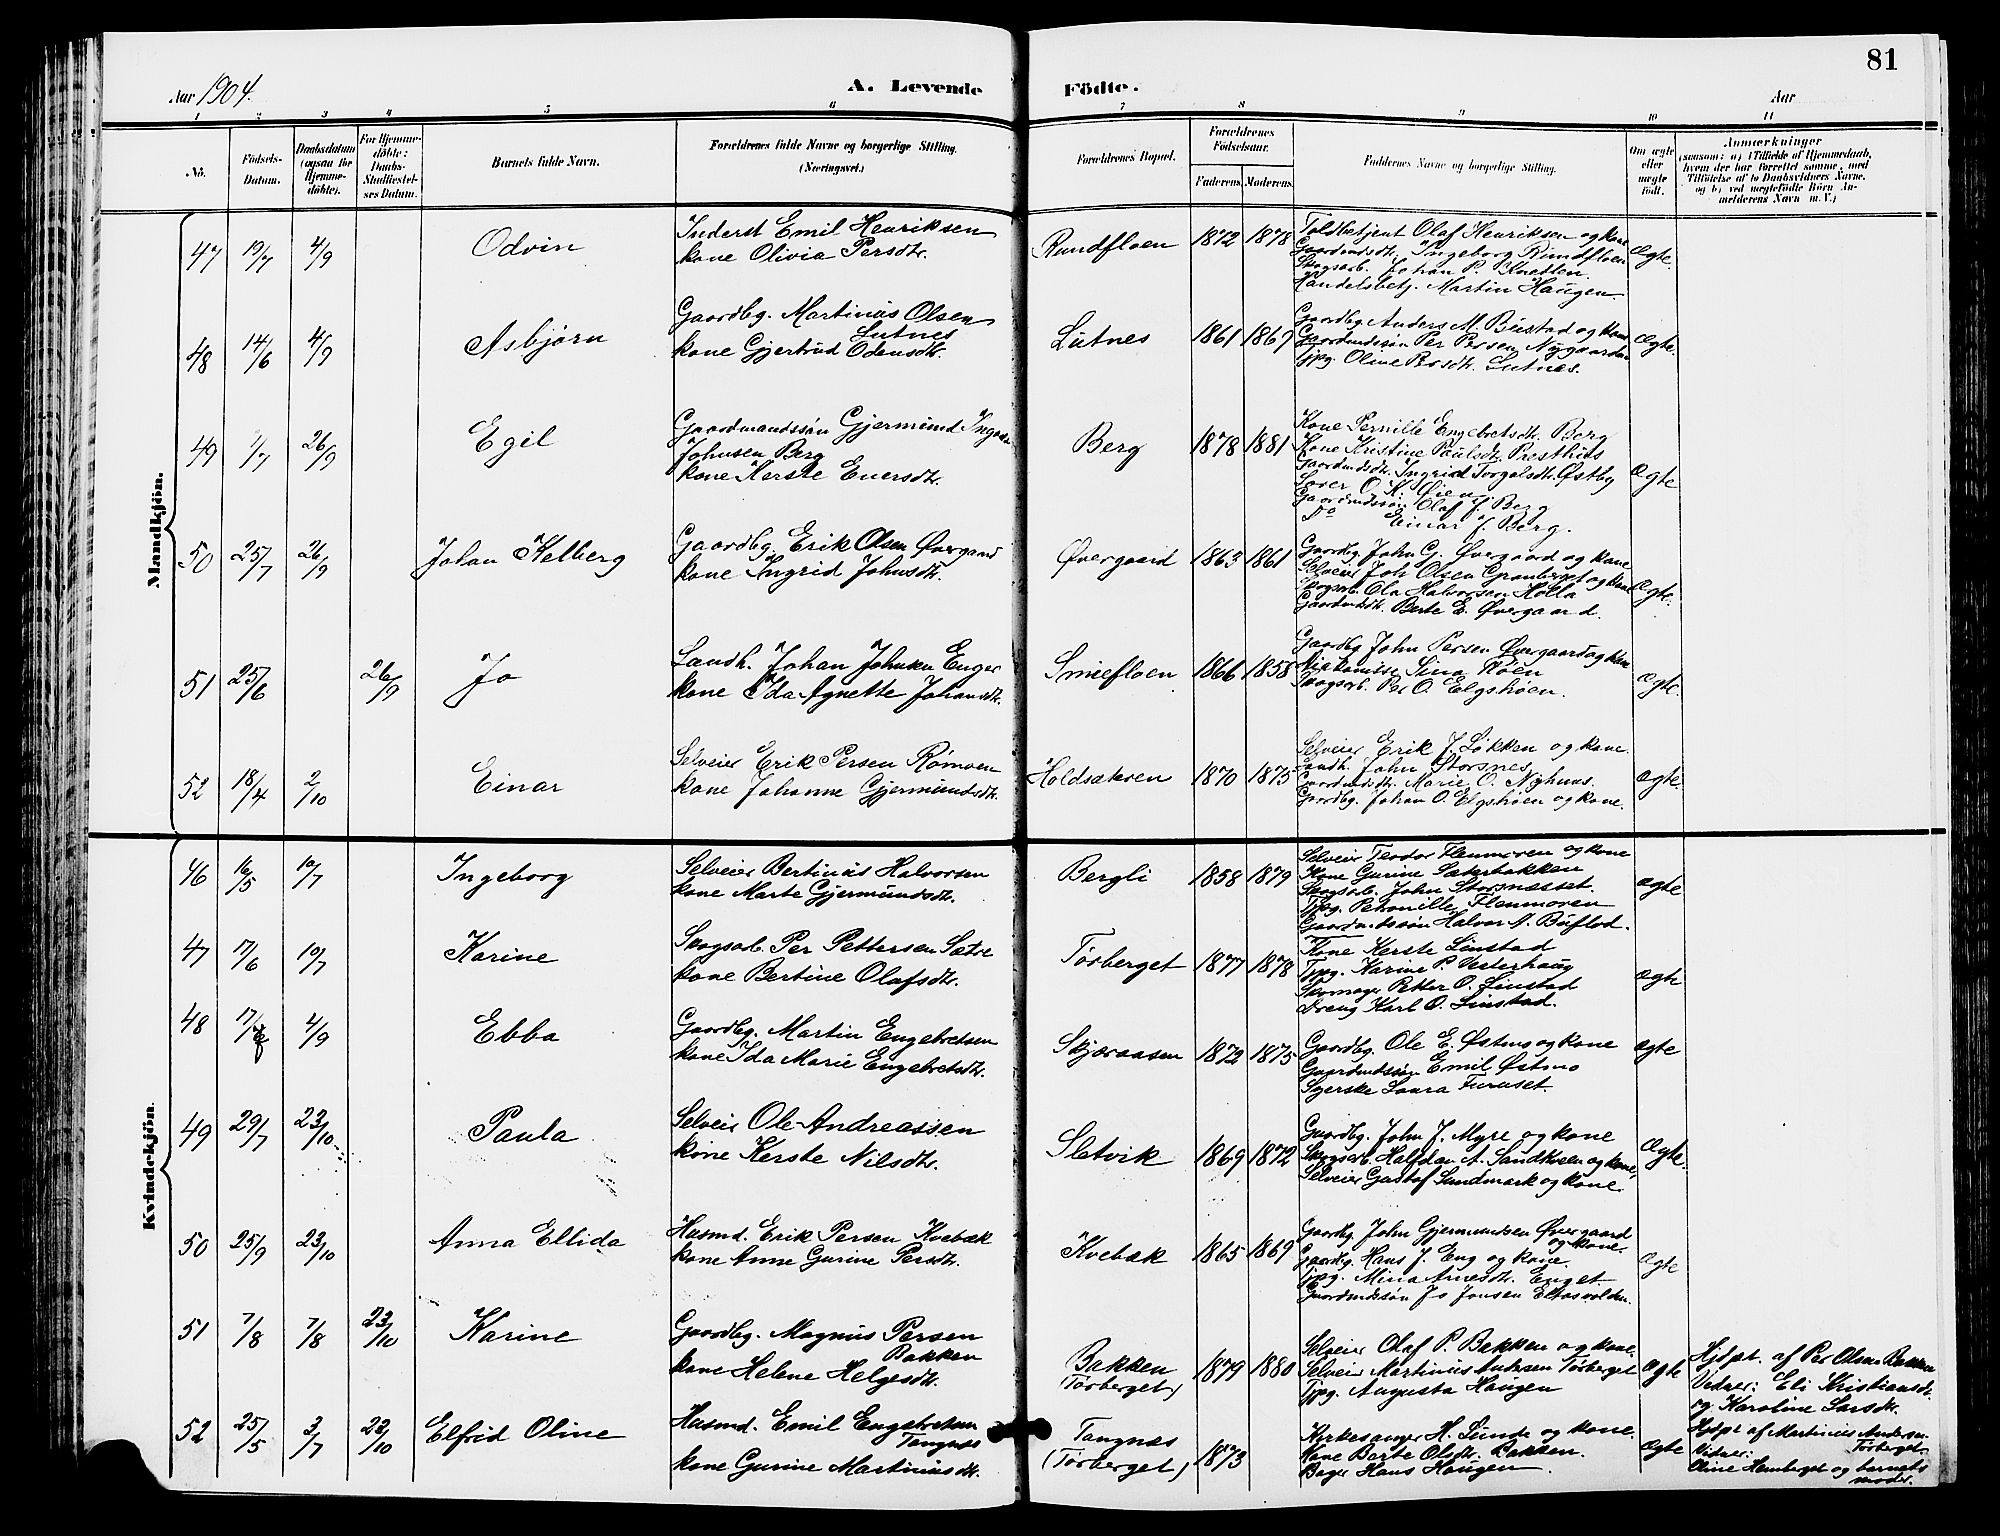 81
Aar 1904.
A. Levende Födte.
Aar
1 2 3 4 5 6 7 8 9 10 11
No.
Födsels-Datum.
Daabsdatum (ogsaa for Hjemme-döbte).
For Hjemme-döbte: Daabs-Stadfæstelses Datum.
Barnets fulde Navn.
Forældrenes fulde Navne og borgerlige Stilling. (Næringsvei.)
Forældrenes Bopæl.
Forældrenes Födselsaar.
Faderens. Moderens.
Faddernes Navne og borgerlige Stilling.
Om ægte eller uægte födt.
Anmærkninger
(saasom: a) i Tilfælde af Hjemmedaab, hvem der har forrettet samme, med Tilföielse af to Daabsvidners Navne, og b) ved uægtefödte Börn Anmelderens Navn m. V.)
Mandkjön.
47 19/7 4/9 Odvin
Inderst Emil Henriksen
kone Olivia Persdtr.
Rundfloen 1872 1878
Toldbetjent Olaf Henriksen og kone
Gaardmdsdtr. Ingeborg Rundfloen
Skogsarb. Johan P. Knatten
Handelsbetj. Martin Haugen.
Ægte.
48 14/6 4/9 Asbjørn
Gaardbg. Martinus Olsen
Lutnes
kone Gjertrud Odensdtr.
Lutnes 1861 1869
Gaardbg. Anders M. Bustad og kone
Gaardmdssøn Per Persen Nygaarden
Tjpg. Oline Persdtr. Lutnes.
Ægte.
49 1/7 26/9 Egil
Gaardmandssøn Gjermund
Johnsen Berg
kone Kerste Enersdtr.
Berg 1878 1881
Kone Pernille Engebretsdtr. Berg
Kone Kristine Paulsdtr. Presthus
Gaardmdsdtr. Ingrid Torgalsdtr. Østby
O. K. Øien
Gaardmdssøn Olaf J. Berg
Do Einar J. Berg.
Ægte
50 25/7 26/9 Johan Kelberg
Gaardbg. Erik Olsen Øvergaard
kone Ingrid Johnsdtr.
Øvergaard 1863 1861
Gaardbg. John G. Øvergaard og kone
Selveier Joh. Olsen Granberget og kone
Skogsarb. Ola Halvorsen Holla
Gaardmdsdtr. Berte E. Øvergaard.
Ægte.
51 25/6 26/9 Jo
Landh. Johan Johnsen Enger
kone Ida Agnette Johansdtr.
Smiefloen 1866 1858
Gaardbg John Persen Øvergaard og kone
Sina Moen
Skogsarb. Per O. Elgshøen.
Ægte.
52 18/4 2/10 Einar
Selveier Erik Persen Rømoen
kone Johanne Gjermundsdtr.
Holdsæteren 1870 1875
Selveier Erik J. Løkken og kone.
Landh. John Storsnes
Gaardmdsdtr. Marie O. Nyhuus.
Gaardbg. Johan O. Elgshøen og kone.
Ægte
Kvindekjön.
46 16/5 10/7 Ingeborg
Selveier Bertinus Halvorsen
kone Marte Gjermundsdtr.
Bergli 1858 1879
Selveier Teodor Flenmoren og kone
Kone Gurine Sæterbakken
Skogsarb. John Storsnæsset.
Tjpg. Petronille Flenmoren
Gaardmdssøn Halvor A. Buflod.
Ægte
47 17/6 10/7 Karine
Skogsarb. Per Pettersen Sætre
kone Bertine Olafsdtr.
Tørberget 1877 1878
Kone Kerste Linstad
Tjpg. Karine P. Vesterhaug
Skomager Petter O. Linstad
Dreng Karl O. Linstad.
Ægte
48 17/6 4/9 Ebba
Gaardbg. Martin Engebretsen
kone Ida Marie Engebretsdtr.
Skjæraasen 1872 1875
Gaardbg. Ole E. Østmo og kone
Gaardmdssøn Emil Østmo
Syerske Laura Furuset.
Ægte
49 29/7 23/10 Paula
Selveier Ole Andreassen
kone Kerste Nilsdtr.
Sletvik 1869 1872
Gaardbg. John J. Myre og kone
Skogsarb. Halfdan A. Sandkveen og kone,
Selveier Gustaf Sundmark og kone.
Ægte.
50 25/9 23/10 Anna Ellida
Husmd. Erik Persen Kvebæk
kone Anne Gurine Persdtr.
Kvebæk 1865 1869
Gaardbg. John Gjermundsen Øvergaard
og kone.
Gaardbg. Hans J. Eng og kone.
Tjpg. Mina Arnesdtr. Enget
Gaardmdssøn Jo Jonsen Eltasvolden.
Ægte
51 7/8 7/8 23/10 Karine
Gaardbg. Magnus Persen
Bakken
kone Helene Helgesdtr.
Bakken
(Tørberget)
1879 1880
Selveier Olaf P. Bakken og kone.
Selveier Martinus Andersen Tørberget
Tjpg. Augusta Haugen
Ægte
Hjdpt. af Per Olsen Bakken
Vidner: Eli Kristiansdtr.
og Karoline Larsdtr.
52 25/5 3/7 23/10 Elfrid Oline
Husmd. Emil Engebretsen
Tangnæs
kone Gurine Martinusdtr.
Tangnæs
(Tørberget)
1873
Kirkesanger H. Lunde og kone.
Kone Berte Olsdtr. Bakken.
Bager Hans Haugen
Ægte
Hjdpt af Martinius Andersen
Tørberget.
Vidner:
Oline Hemberget og barnets
moder.